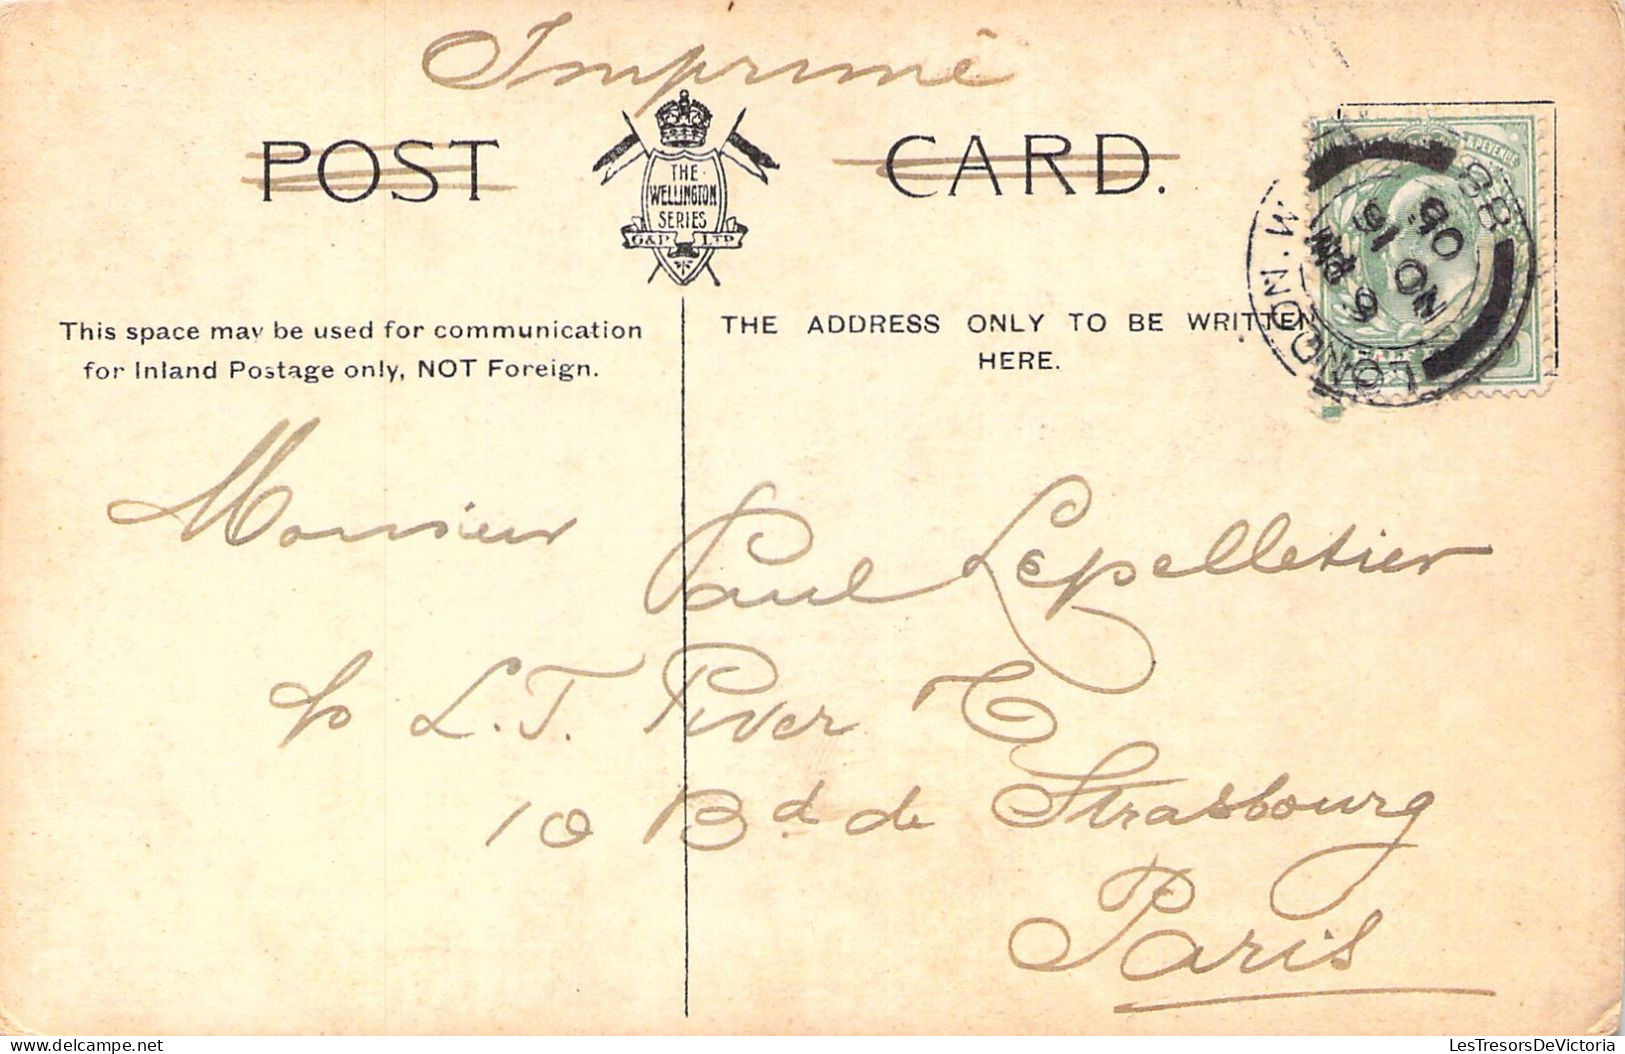 Imprimé
POST CARD.
THE
WELLINGTON
SERIES
G&P LTD
This space may be used for communication
for Inland Postage only, NOT Foreign.
THE ADDRESS ONLY TO BE WRITTEN
HERE.
& REVENUE
LONDON. W.
88
6 PM
NO 16
06
Monsieur Paul Lepelletier
c/o L. T. Piver
10 Bd de Strasbourg
Paris
LesTresorsDeVictoria
delcampe.net